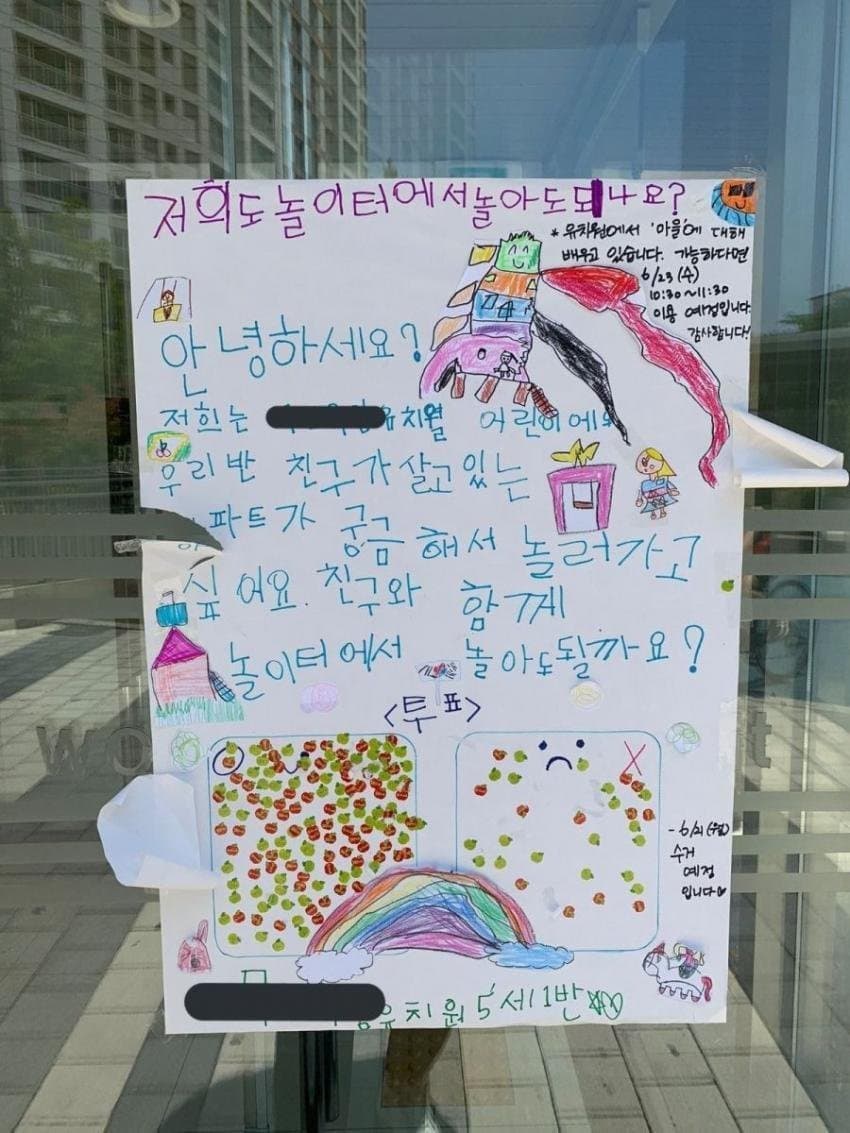 저희도 놀이터에서 놀아도 되나요?
* 유치원에서 '마을'에 대해
배우고 있습니다. 가능하다면
6/23 (수)
10:30~11:30
이용 예정입니다.
감사합니다!
안녕하세요?
저희는 유치원 어린이에요
우리반 친구가 살고 있는
파트가 궁금해서 놀러가고
싶어요. 친구와 함께
놀이터에서 놀아도될까요?
<투표>
O
X
- 6/21 (월)
수거
예정
입니다♡
유치원 5세 1반